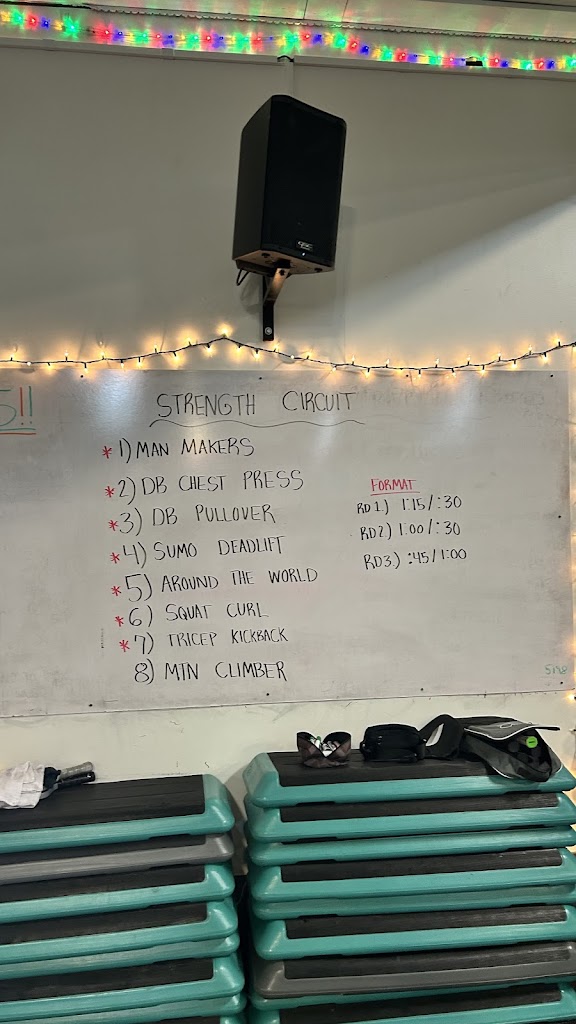 5!!
STRENGTH CIRCUIT
* 1) MAN MAKERS
* 2) DB CHEST PRESS
* 3) DB PULLOVER
* 4) SUMO DEADLIFT
* 5) AROUND THE WORLD
* 6) SQUAT CURL
* 7) TRICEP KICKBACK
8) MTN CLIMBER
FORMAT
RD 1.) 1:15/:30
RD2) 1:00/:30
RD3.) :45/1:00